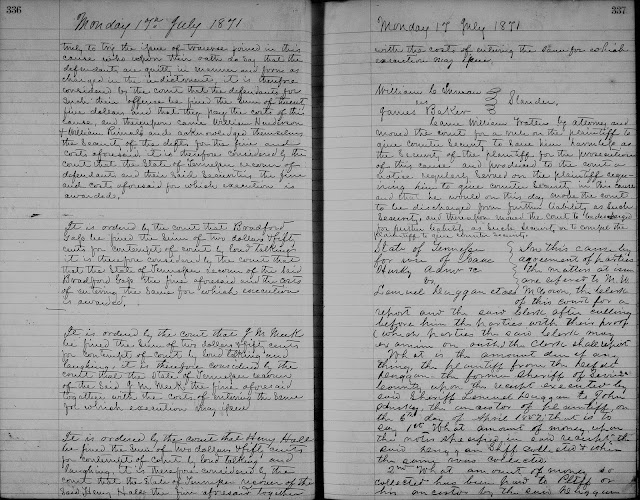 336
Monday 17th July 1871
truly to try the issue of traverse joined in this
cause who upon their oath do say that the
defendants are guilty in manner and form as
charged in the indictment, it is therefore
considered by the court that the defendants for
such their offence be fined the sum of
five dollars and that they pay the costs of this
cause, and therefore came William Henderson
& William and acknowledged themselves
the security of the defts for the fine and
costs aforesaid. it is therefore considered by the
court that the State of Tennessee recover of
defendants and their said securities the fine
and costs aforesaid for which execution is
awarded.
It is ordered by the court that Bradford
be fined the sum of two dollars & fifty
cents for contempt of court by loud talking
it is therefore considered by the court that
that the State of Tennessee recover of the said
Bradford the fine aforesaid and the costs
of entering the same for which execution
is awarded
It is ordered by the court that J. M. Meek
be fined the sum of two dollars & fifty cents
for contempt of court by loud talking and
laughing. it is therefore considered by the
court that the State of Tennessee recover
of the said J M Meek the fine aforesaid
together with the costs of entering the same
for which execution may issue
It is ordered by the court that Henry Hall
be fined the sum of two dollars & fifty cents
for contempt of court by loud talking and
laughing, it is therefore considered by the
court that the State of Tennessee recover of the
said Henry Hall the fine aforesaid together
337
Monday 17 July 1871
with the costs of entering the same for which
execution may issue.
William C Inman
vs Slander,
James Baker
Came William by attorney and
moved the court for a rule on the plaintiff to
give counter security to save him harmless as
the security of the plaintiff for the prosecution
of this cause and produced to the court a
notice regularly served on the plaintiff requi-
ring him to give counter security in this cause
and that he would on this day move the court
to be discharged from further liability as such
security, and thereupon moved the court to
for further liability as such security or to compel the
Plaintiff to give counter security.
State of Tennessee In this cause by
for use of Isaac agreement of parties
Husky Admr &c the matters at issue
vs are referred to M. W.
Lemuel Duggan et als McCown the Clerk
of this court for a
report and the said Clerk after calling
before him the parties with their proof
(which parties the said Clerk may
examine on oath) the Clerk shall report
What is the amount due if any
thing, the plaintiff from the defendt
Duggan the former Sheriff of Sevier
County upon the receipt executed by
said Sheriff Lemuel Duggan to John
Husky the ancestor of plaintiff on
the 6th day of April that is to
say 1st What amount of money upon
the notes specified in said receipt the
said Duggan Shff collected & when
the same was collected.
2nd What amount of money so
collected has been paid to Plttff or
his ancestor by the said Duggan